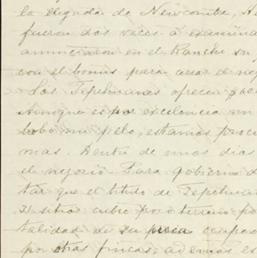 la llegada de Newcombe, A
fueron dos veces a examina
anunciaron en el Rancho su
con el bonus para
Los Tepehuanes ofrecen
Aunque es por excelencia un
bobo mi pelo, estamos proce
mas. Dentro de unos dias
el negocio. Para gobierno d
tar que el titulo de Tepehua
sitio entre por
talidad de su ocupac
por otras fincas, ademas es